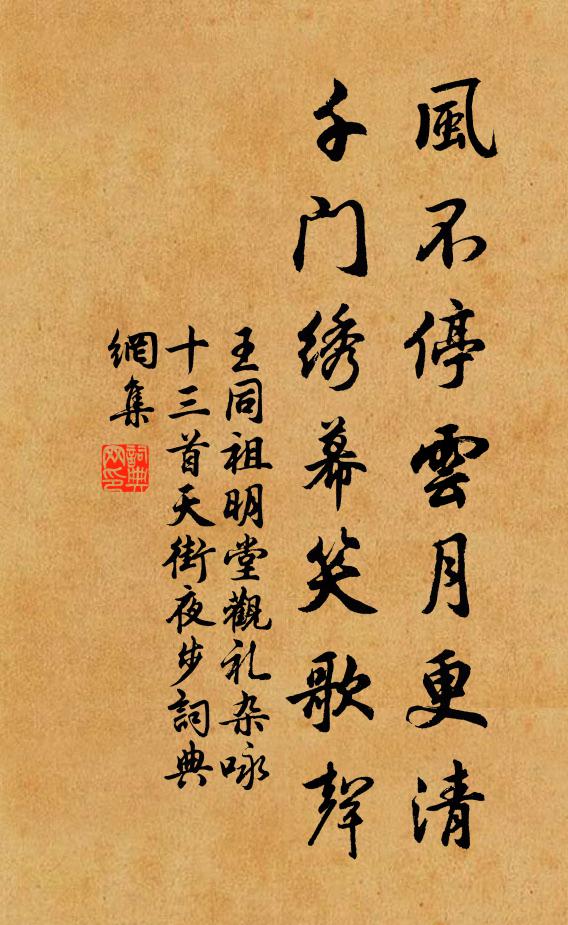 風不停雲月更清
千门绣幕笑歌聲
王同祖明堂觀礼杂咏
十三首天街夜步詞典
網集
詞典
网印